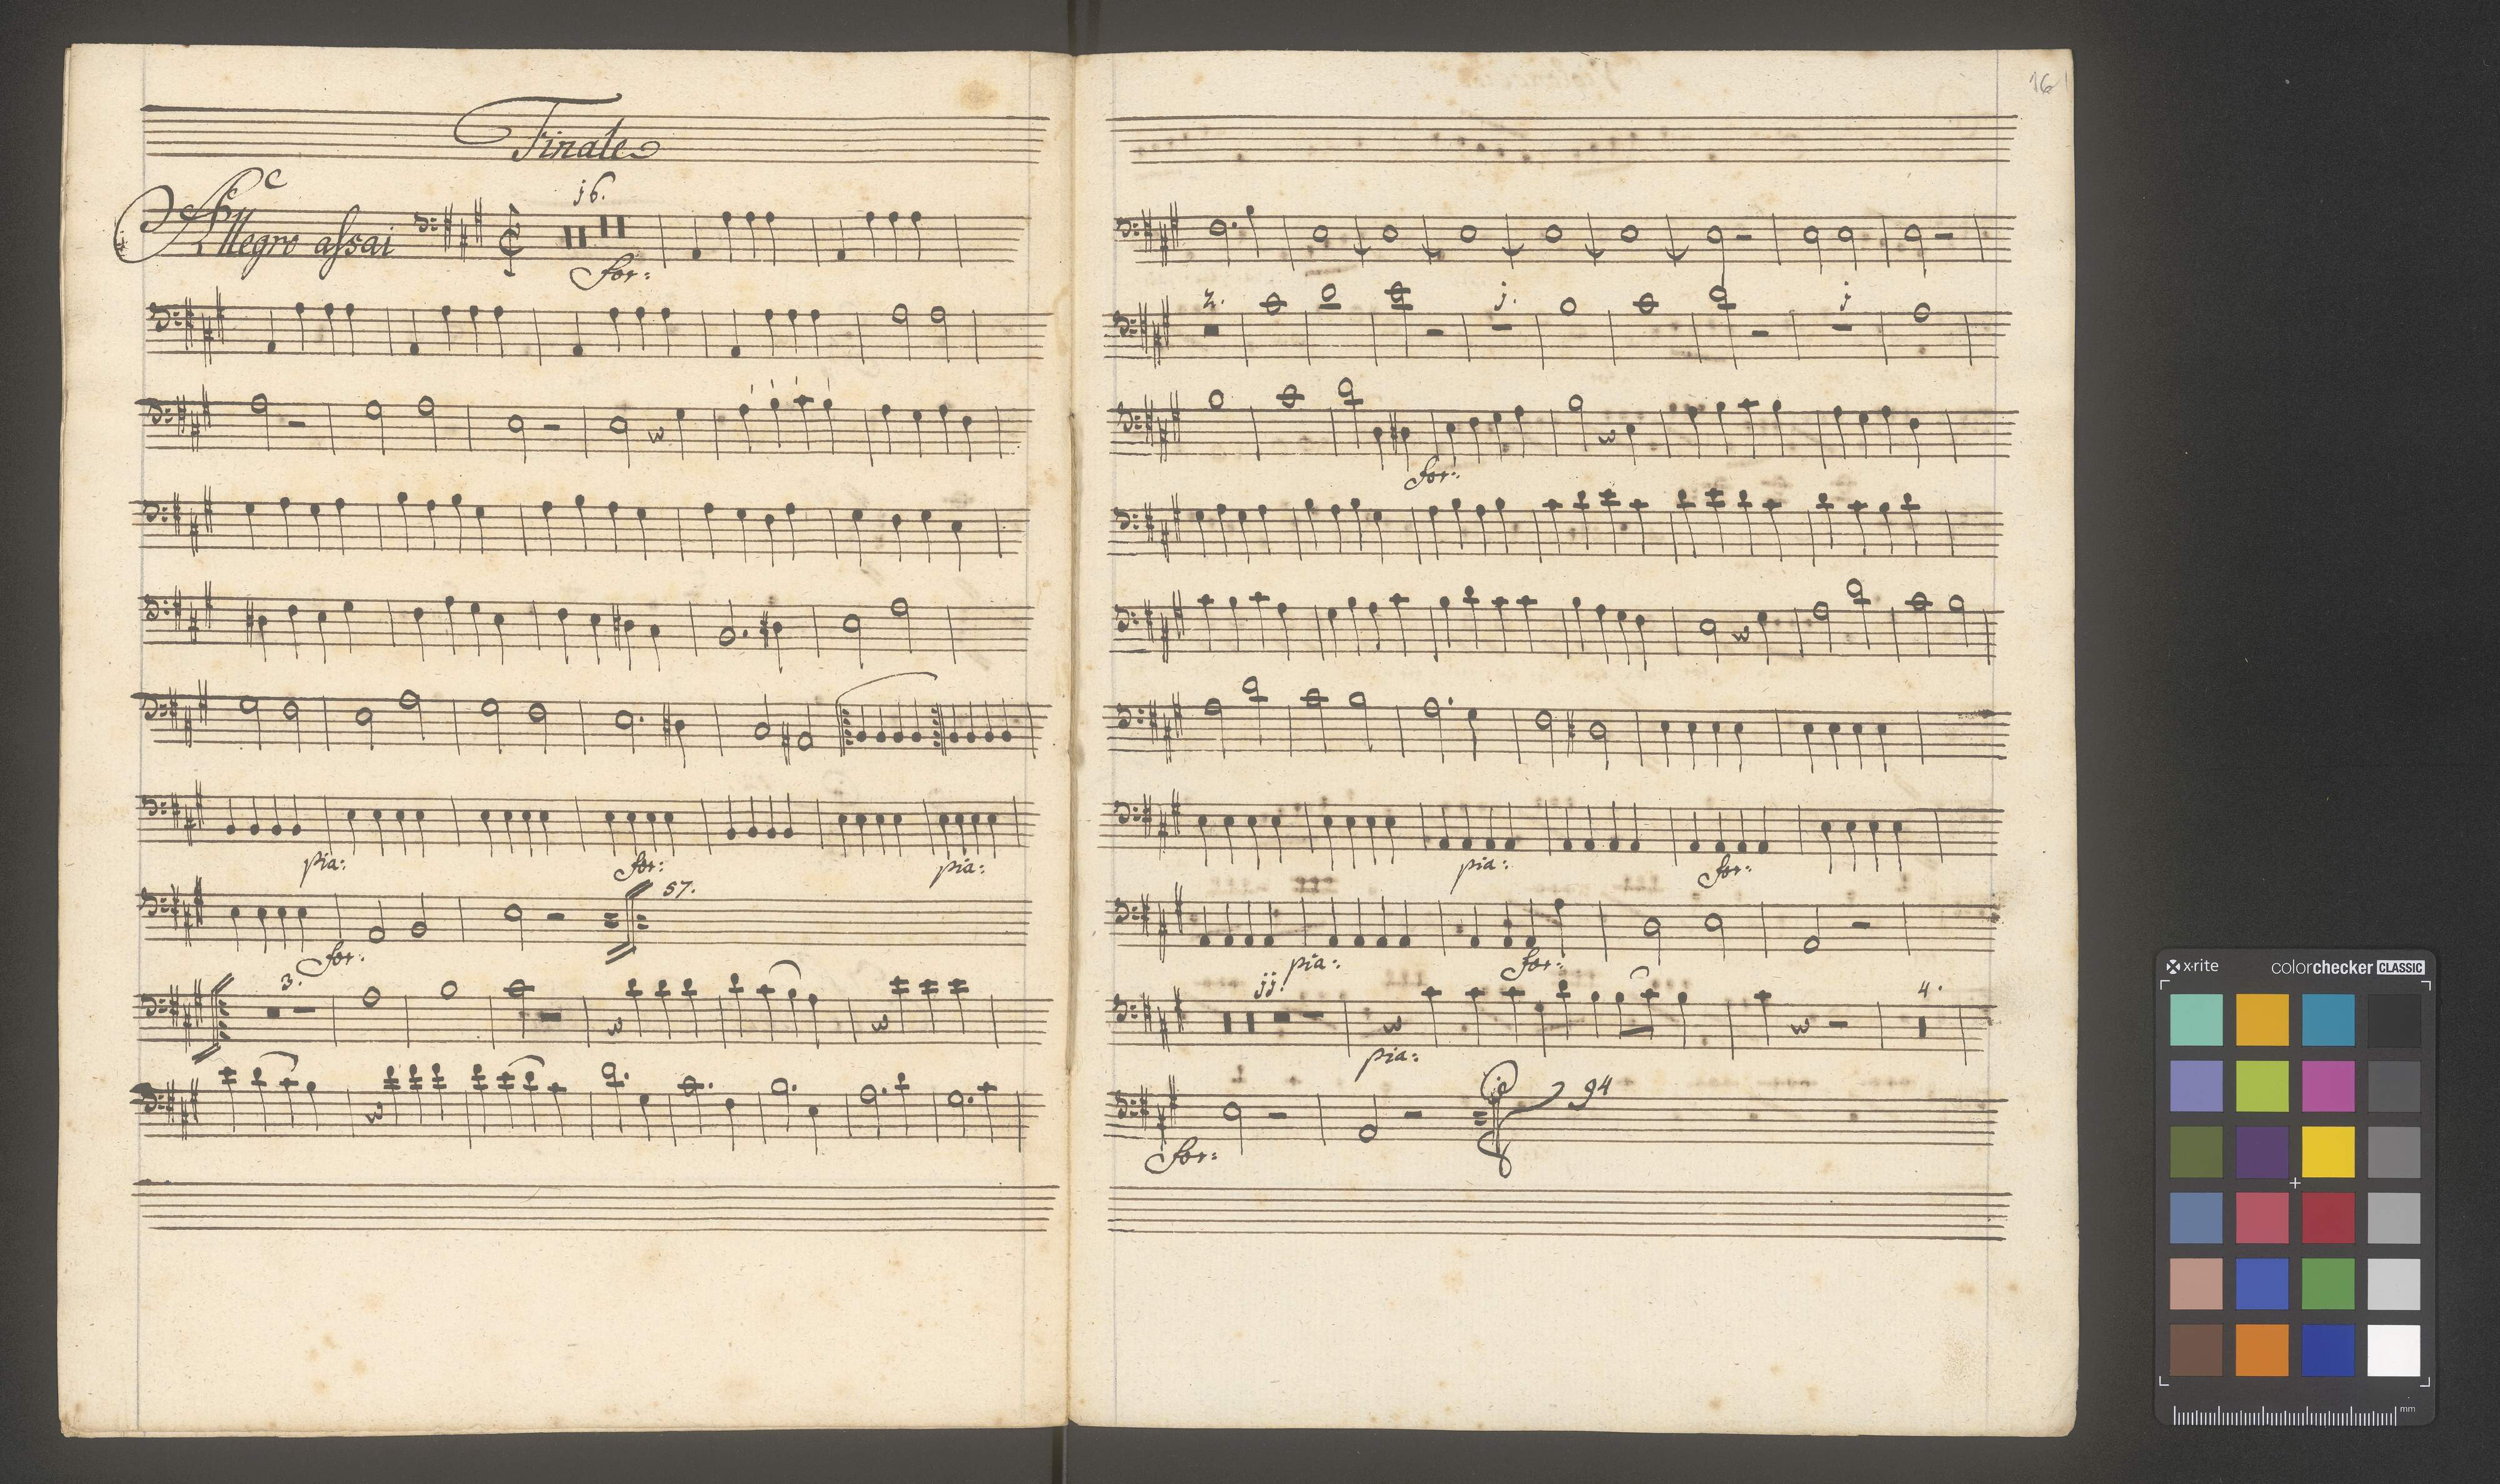 Finale
Allegro assai
j6.
for:
pia:
for:
pia:
57.
for:
3.
16
2.
j.
j
for:
pia:
for:
pia:
for:
jj.
4.
pia:
94
for:
x·rite
colorchecker CLASSIC
mm